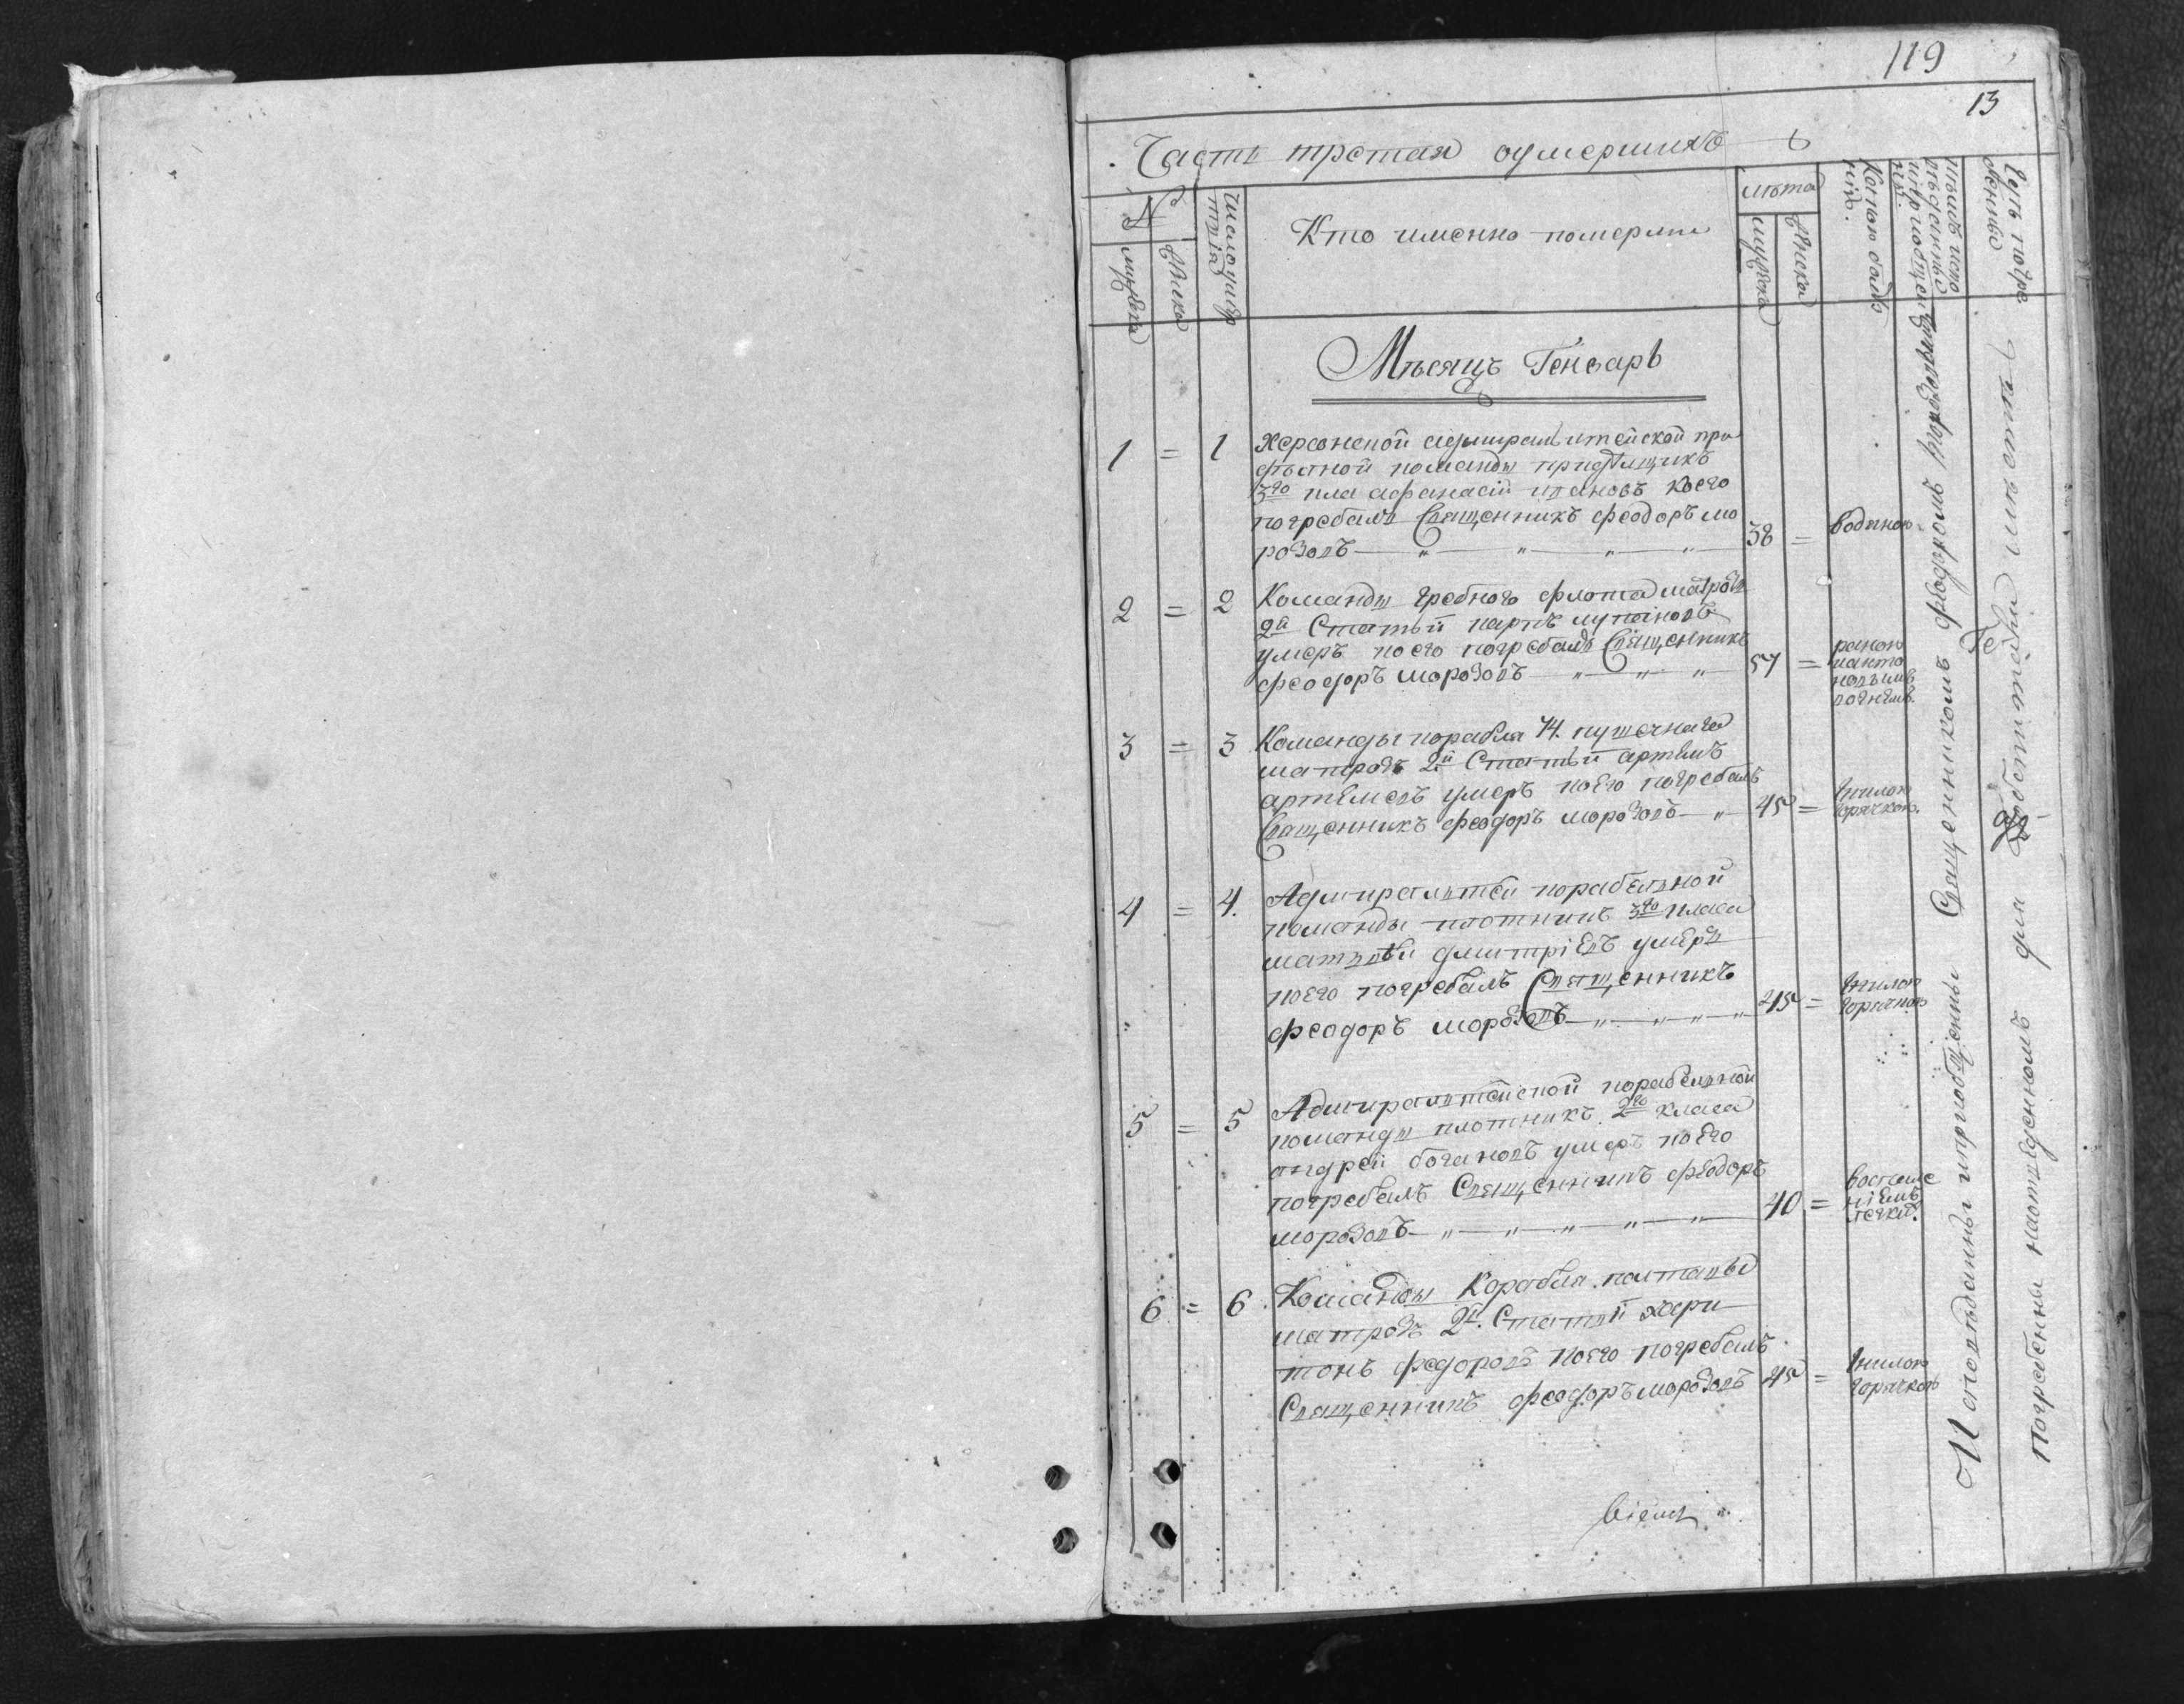 119
13
Часть третая оумершихъ
№
мужеска
женска
Число умер
твія
Кто именно померли
лѣта
мужеска
женска
Какою болѣ
знію.
Кѣмъ испо
вѣданы
и пріобщен
ны.
Гдѣ погре
бенны
Мѣсяцъ Генварь
1 = 1 Херсонской адмиралтейской при
дѣлной команды придѣлщикъ
3го кла афанасій ивановъ коего
погребалъ Священникъ феодоръ мо
розовъ 38 = водяною
2 = 2 Команды гребного флота матрозъ
2й Статьи карпъ лупановъ
умеръ коего погребалъ Священникъ
феодоръ морозовъ 57 =
3 = 3 Команды корабля 74. пушечнаго
матрозъ 2й Статьи артемъ
артемевъ умеръ коего погребалъ
Священникъ феодоръ морозовъ 45 = гнилою
горячкою.
4 = 4. Адмиралтей корабелной
команды плотникъ 3го класа
матвѣй дмитріевъ умеръ
коего погребалъ Священникъ
феодоръ морозовъ 45 = гнилою
горячкою
5 = 5 Адмиралтейской корабелной
команды плотникъ 2го класа
андрей богановъ умеръ коего
погребалъ Священникъ феодоръ
морозовъ 40 = воспале
ніемъ
легкихъ.
6 = 6. Команды Корабля полтавы
матрозъ 2й. Статьи хари
тонъ федоровъ коего погребалъ
Священникъ феодоръ морозовъ 45 = гнилою
горячкою
Исповѣданны и пріобщенны Священникомъ феодоромъ морозовымъ
Погребены на отведенномъ для кладбища мѣстѣ